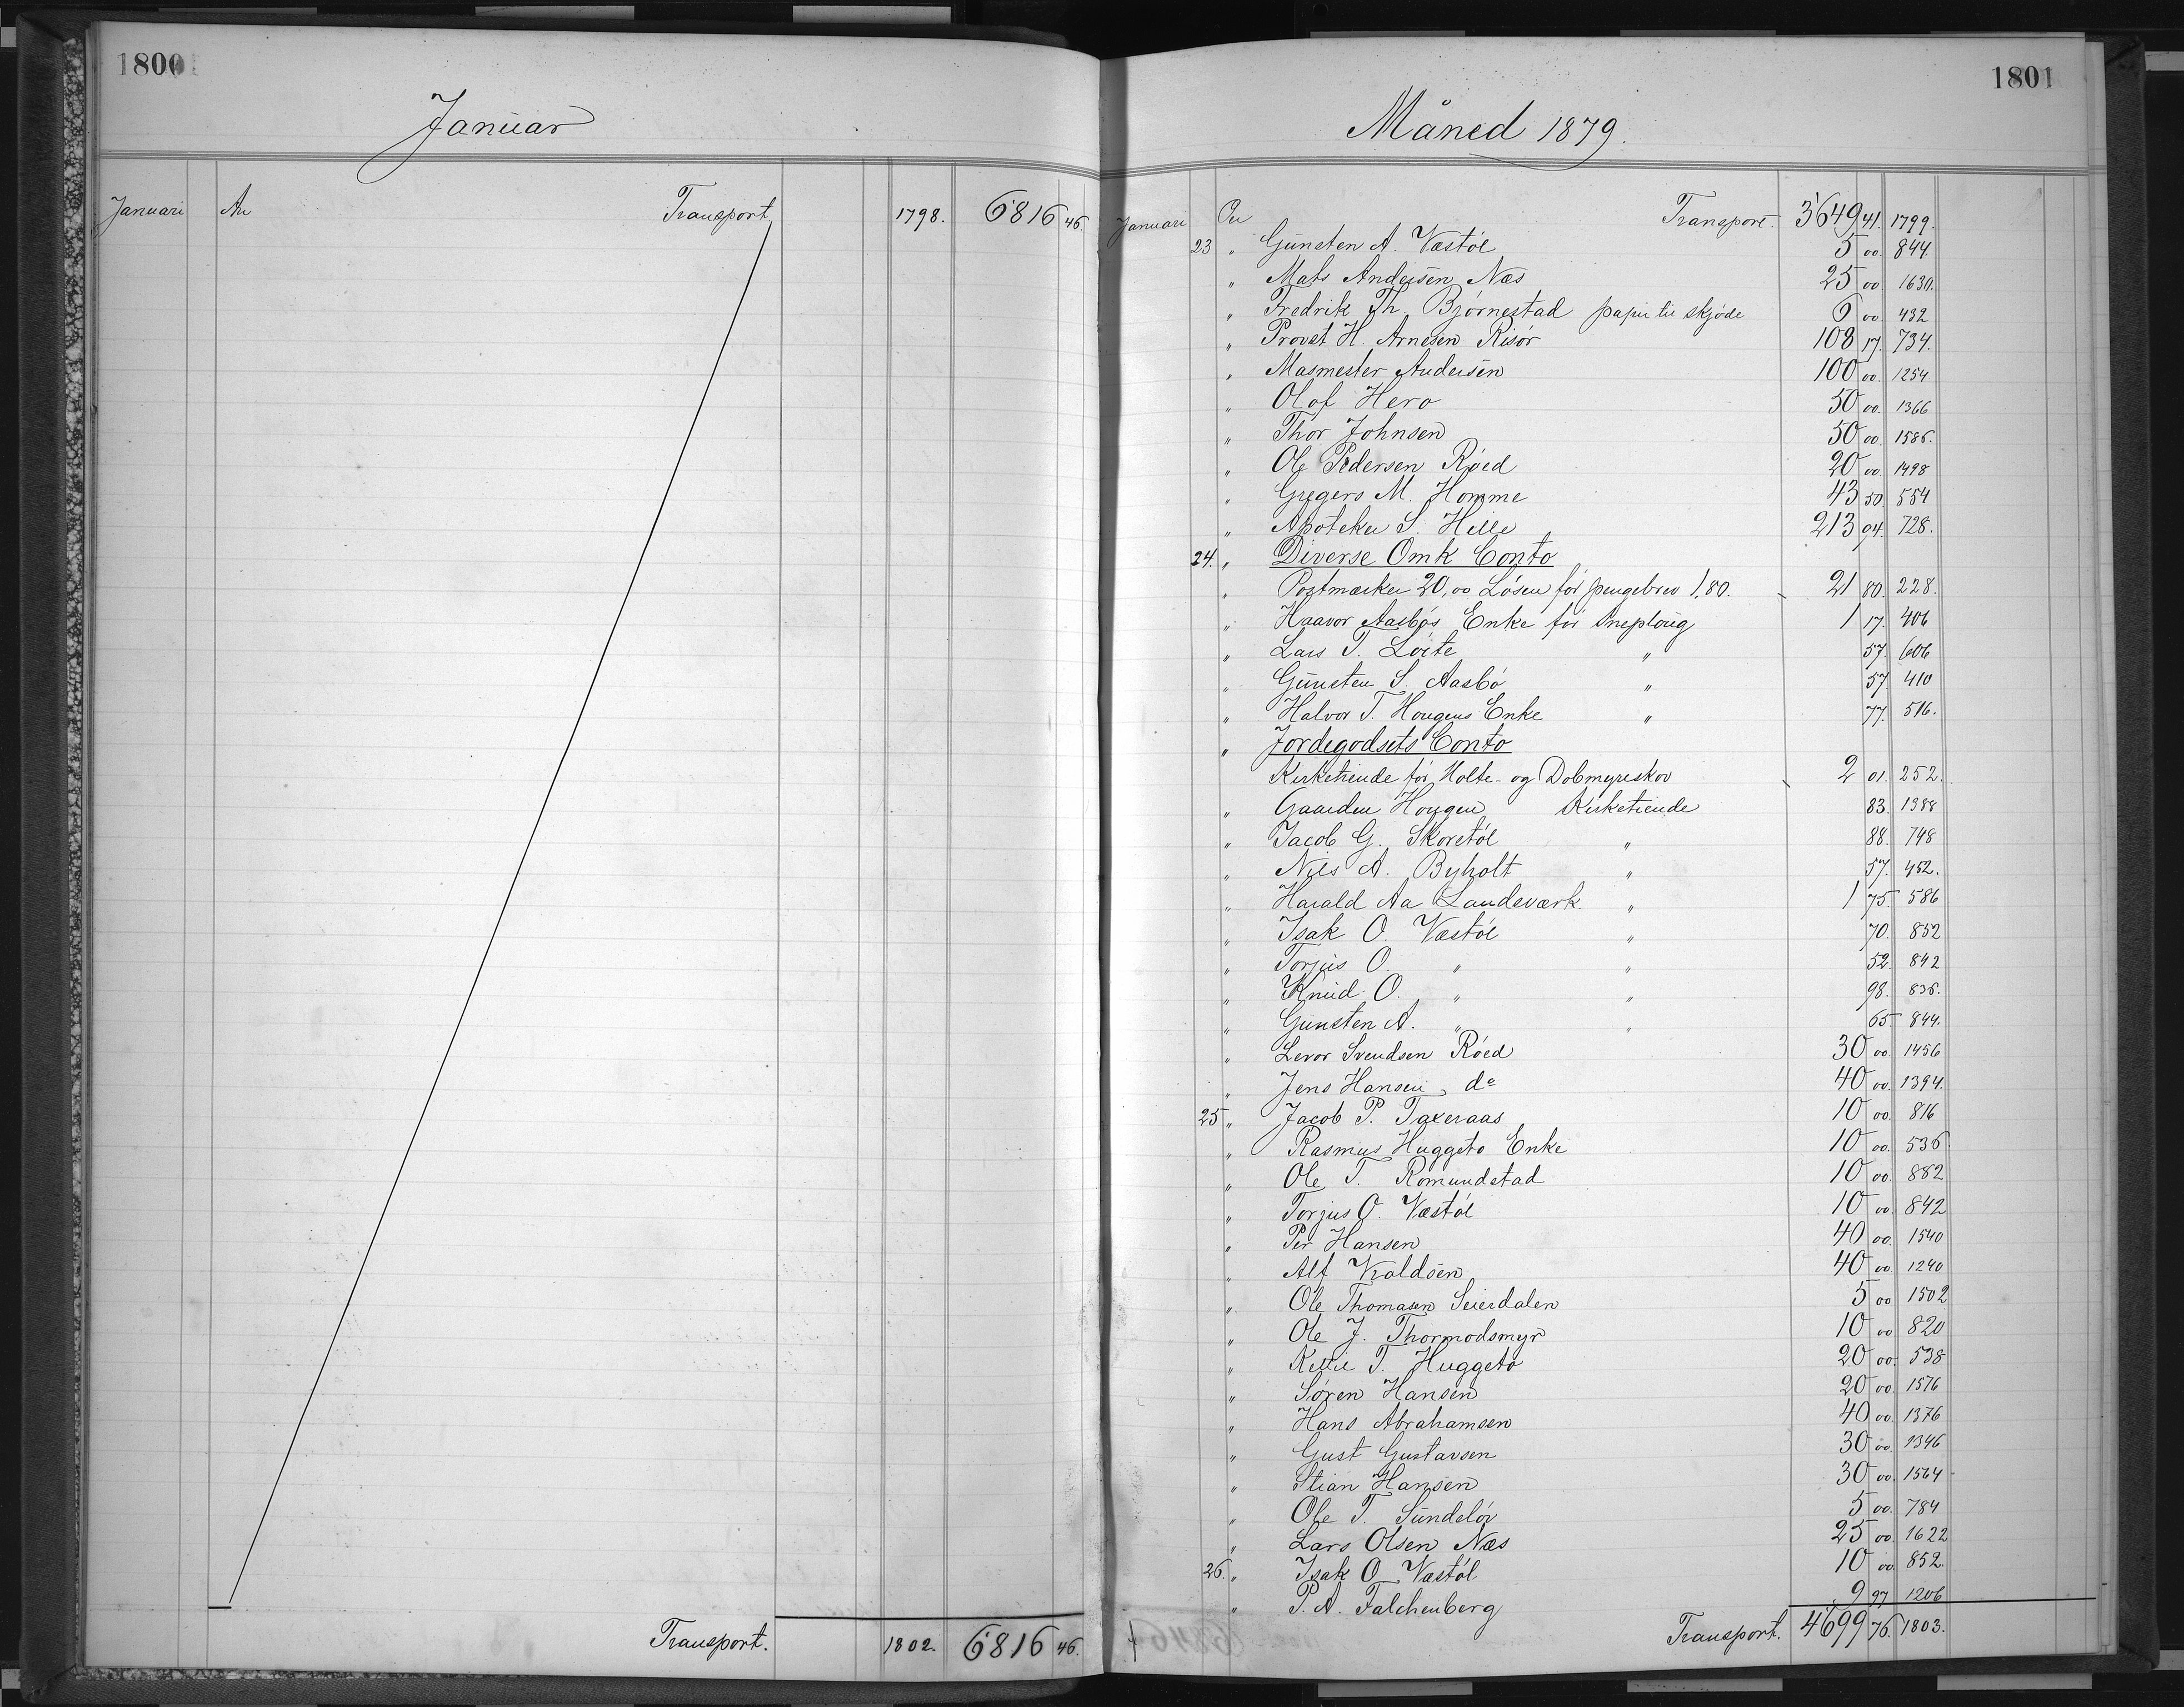 1800
Januar
Januari An Transport 1798. 6816 46.
Transport. 1802. 6816 46.
1801
Måned 1879.
Januari Per Transport. 3649 41. 1799.
23 " Gunsten A. Vestøl 5 00. 844.
" Mats Andersen Næs 25 00 1630.
" Fredrik Th. Bjørnestad papir til skjøde 6 00 432
" Provst H. Arnesen Risør 108 17. 734.
" Masmester Andersen 100 00. 1254
" Olaf Hero 50 00. 1366
" Thor Johnsen 50 00. 1586.
" Ole Pedersen Røed 20 00. 1498
" Gregers M. Homme 43 50. 554
" Apoteker S. Hille 213 94. 728.
24. " Diverse Omk Conto
" Postmærker 20,00 Løsen for pengebrev 1,80. 21 80. 228.
" Haavor Aasbøs Enke for Sneploug 1 17. 406
" Lars T. Løite " 57. 606
" Gunsten S. Aasbø " 57. 410
" Halvor T. Hougens Enke " 77. 516.
" Jordegodsets Conto
Kirketiende for Holte- og Dobmyreskov 2 01. 252.
" Gaarden Hougen Kirketiende 83. 1388
" Jacob G. Skoretøl " 88. 748
" Nils A. Byholt " 57. 452.
" Harald Aa Landsværk. " 1 75. 586
" Isak O. Vestøl " 70. 852
" Torjus O. " " 52. 842
" Knud O. " " 98. 836.
" Gunsten A. " " 65. 844.
" Levor Svendsen Røed 30 00. 1456
" Jens Hansen do 40 00. 1394.
25 " Jacob P. Taxeraas 10 00. 816
" Rasmus Huggeto Enke 10 00. 536.
" Ole T. Romundstad 10 00. 882
" Torjus O. Vestøl 10 00. 842
" Per Hansen 40 00. 1540
" Alf Knoldsen 40 00. 1240
" Ole Thomasen Seierdalen 5 00 1502
" Ole J. Thormodsmyr 10 00 820
" Kettil T. Huggeto 20 00. 538
" Søren Hansen 20 00. 1576
" Hans Abrahamsen 40 00. 1376
" Gust Gustavsen 30 00. 1346
" Stian Hansen 30 00. 1564
" Ole T. Sundeløv 5 00. 784
" Lars Olsen Næs 25 00. 1622
26. " Isak O. Vestøl 10 00. 852.
" P. A. Falchenberg 9 97 1206
Transport. 4699 76. 1803.